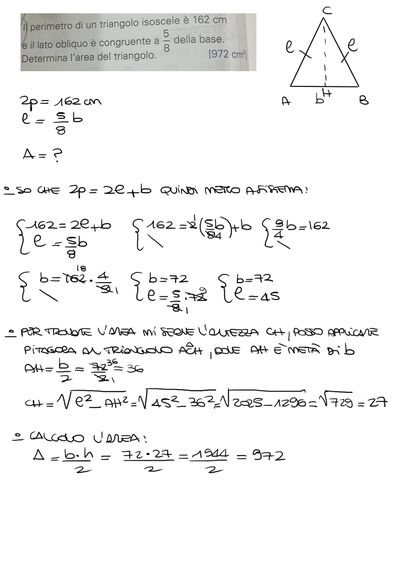 Il perimetro di un triangolo isoscele è 162 cm
e il lato obliquo è congruente a 5/8 della base.
Determina l'area del triangolo. [972 cm²]
C
ℓ ℓ
A b H B
2p = 162 cm
ℓ = 5/8 b
A = ?
• SO CHE 2p = 2ℓ + b QUINDI METTO A SISTEMA:
{162 = 2ℓ + b {162 = 2(5b/84) + b {9/4 b = 162
{ℓ = 5b/8 {\ {\
{b = 162 18 · 4/9 1 {b = 72 {b = 72
{\ {ℓ = 5/8 1 · 72 9 {ℓ = 45
• PER TROVARE L'AREA MI SERVE L'ALTEZZA CH, POSSO APPLICARE
PITAGORA AL TRIANGOLO AĤC, DOVE AH È METÀ DI b
AH = b/2 = 72 36/2 1 = 36
CH = √ℓ² - AH² = √45² - 36² = √2025 - 1296 = √729 = 27
• CALCOLO L'AREA:
A = b·h/2 = 72·27/2 = 1944/2 = 972